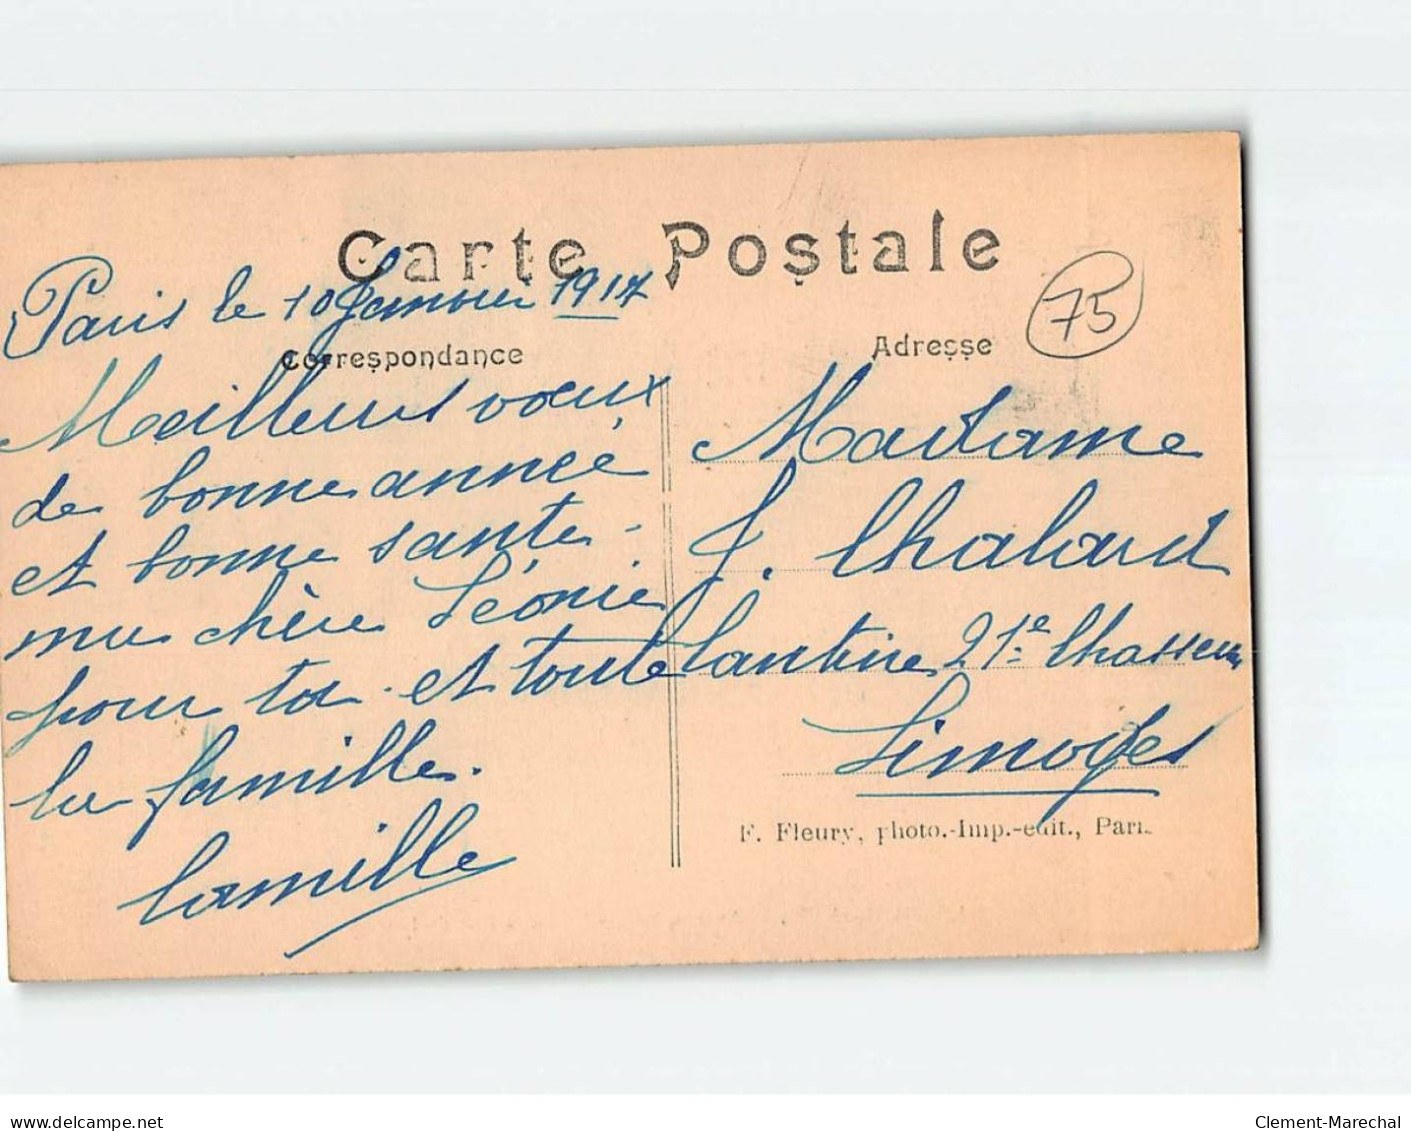 Carte Postale
Paris le 10 Janvier 1917
Correspondance
Meilleurs vœux
de bonne année
et bonne santé
ma chère Léonie
pour toi et toute
la famille.
Camille
75
Adresse
Madame
J. Chalard
Cantine 21e Chasseurs
Limoges
F. Fleury, photo.-Imp.-edit., Paris
delcampe.net
Clement-Marechal